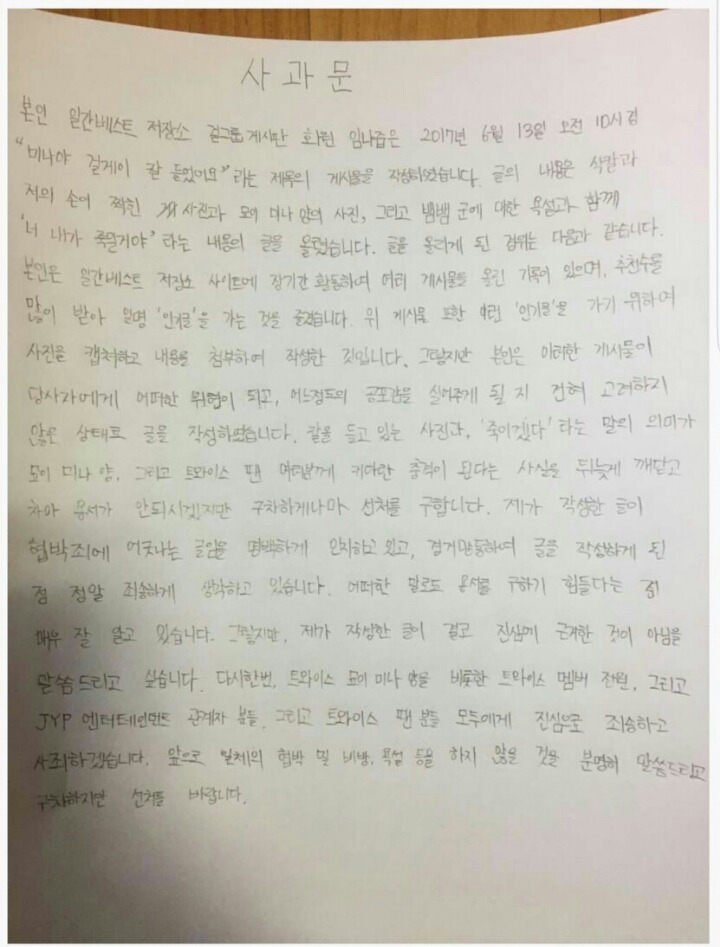 사과문
본인 일간베스트 저장소 걸그룹 게시판 회원 임나즙은 2017년 6월 13일 오전 10시경
"미나야 걸게이 칼 들었어요" 라는 제목의 게시물을 작성하였습니다. 글의 내용은 식칼과
저의 손이 찍힌 사진과 묘이 미나 양의 사진, 그리고 뱀뱀 군에 대한 욕설과 함께
'너 내가 죽일거야' 라는 내용의 글을 올렸습니다. 글을 올리게 된 경위는 다음과 같습니다.
본인은 일간베스트 저장소 사이트에 장기간 활동하며 여러 게시물을 올린 기록이 있으며, 추천수를
많이 받아 일명 '인기글'을 가는 것을 즐겼습니다. 위 게시물 또한 이런 '인기글'을 가기 위하여
사진을 캡처하고 내용을 첨부하여 작성한 것입니다. 그렇지만 본인은 이러한 게시물이
당사자에게 어떠한 위협이 되고, 어느정도의 공포감을 실어주게 될 지 전혀 고려하지
않은 상태로 글을 작성하였습니다. 칼을 들고 있는 사진과, '죽이겠다' 라는 말의 의미가
묘이 미나 양, 그리고 트와이스 팬 여러분께 커다란 충격이 된다는 사실을 뒤늦게 깨닫고
차마 용서가 안되시겠지만 구차하게나마 선처를 구합니다. 제가 작성한 글이
협박죄에 어긋나는 글임을 명백하게 인지하고 있고, 경거망동하여 글을 작성하게 된
점 정말 죄송하게 생각하고 있습니다. 어떠한 말로도 용서를 구하기 힘들다는 점
매우 잘 알고 있습니다. 그렇지만, 제가 작성한 글이 결코 진심에 근거한 것이 아님을
말씀드리고 싶습니다. 다시한번, 트와이스 묘이 미나 양을 비롯한 트와이스 멤버 전원, 그리고
JYP 엔터테인먼트 관계자 분들, 그리고 트와이스 팬 분들 모두에게 진심으로 죄송하고
사죄하겠습니다. 앞으로 일체의 협박 및 비방, 욕설 등을 하지 않을 것을 분명히 말씀드리고
구차하지만 선처를 바랍니다.